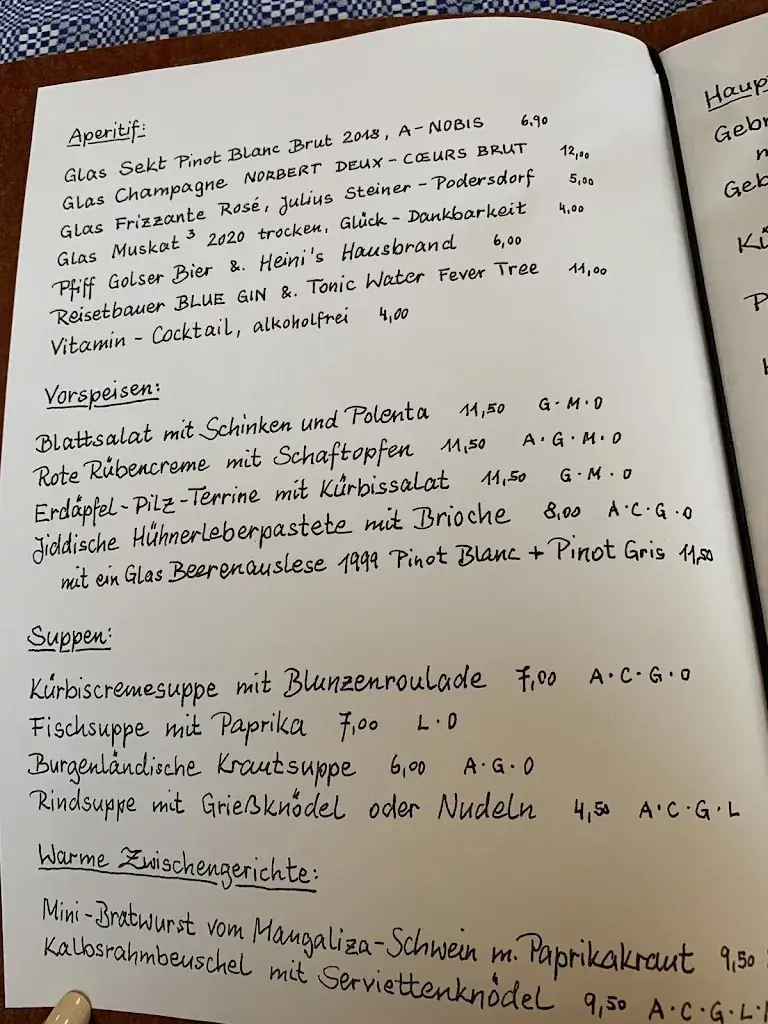 Aperitif:
Glas Sekt Pinot Blanc Brut 2018, A-NOBIS 6,90
Glas Champagne NORBERT DEUX-CŒURS BRUT 12,00
Glas Frizzante Rosé, Julius Steiner-Podersdorf 5,00
Glas Muskat³ 2020 trocken, Glück-Dankbarkeit 4,00
Pfiff Golser Bier &. Heini's Hausbrand 6,00
Reisetbauer BLUE GIN &. Tonic Water Fever Tree 11,00
Vitamin-Cocktail, alkoholfrei 4,00
Vorspeisen:
Blattsalat mit Schinken und Polenta 11,50 G·M·O
Rote Rübencreme mit Schaftopfen 11,50 A·G·M·O
Erdäpfel-Pilz-Terrine mit Kürbissalat 11,50 G·M·O
Jiddische Hühnerleberpastete mit Brioche 8,00 A·C·G·O
mit ein Glas Beerenauslese 1999 Pinot Blanc + Pinot Gris 11,50
Suppen:
Kürbiscremesuppe mit Blunzenroulade 7,00 A·C·G·O
Fischsuppe mit Paprika 7,00 L·D
Burgenländische Krautsuppe 6,00 A·G·O
Rindsuppe mit Grießknödel oder Nudeln 4,50 A·C·G·L
Warme Zwischengerichte:
Mini-Bratwurst vom Mangaliza-Schwein m. Paprikakraut 9,50
Kalbsrahmbeuschel mit Serviettenknödel 9,50 A·C·G·L
Haup
Gebr
Geb
Kü